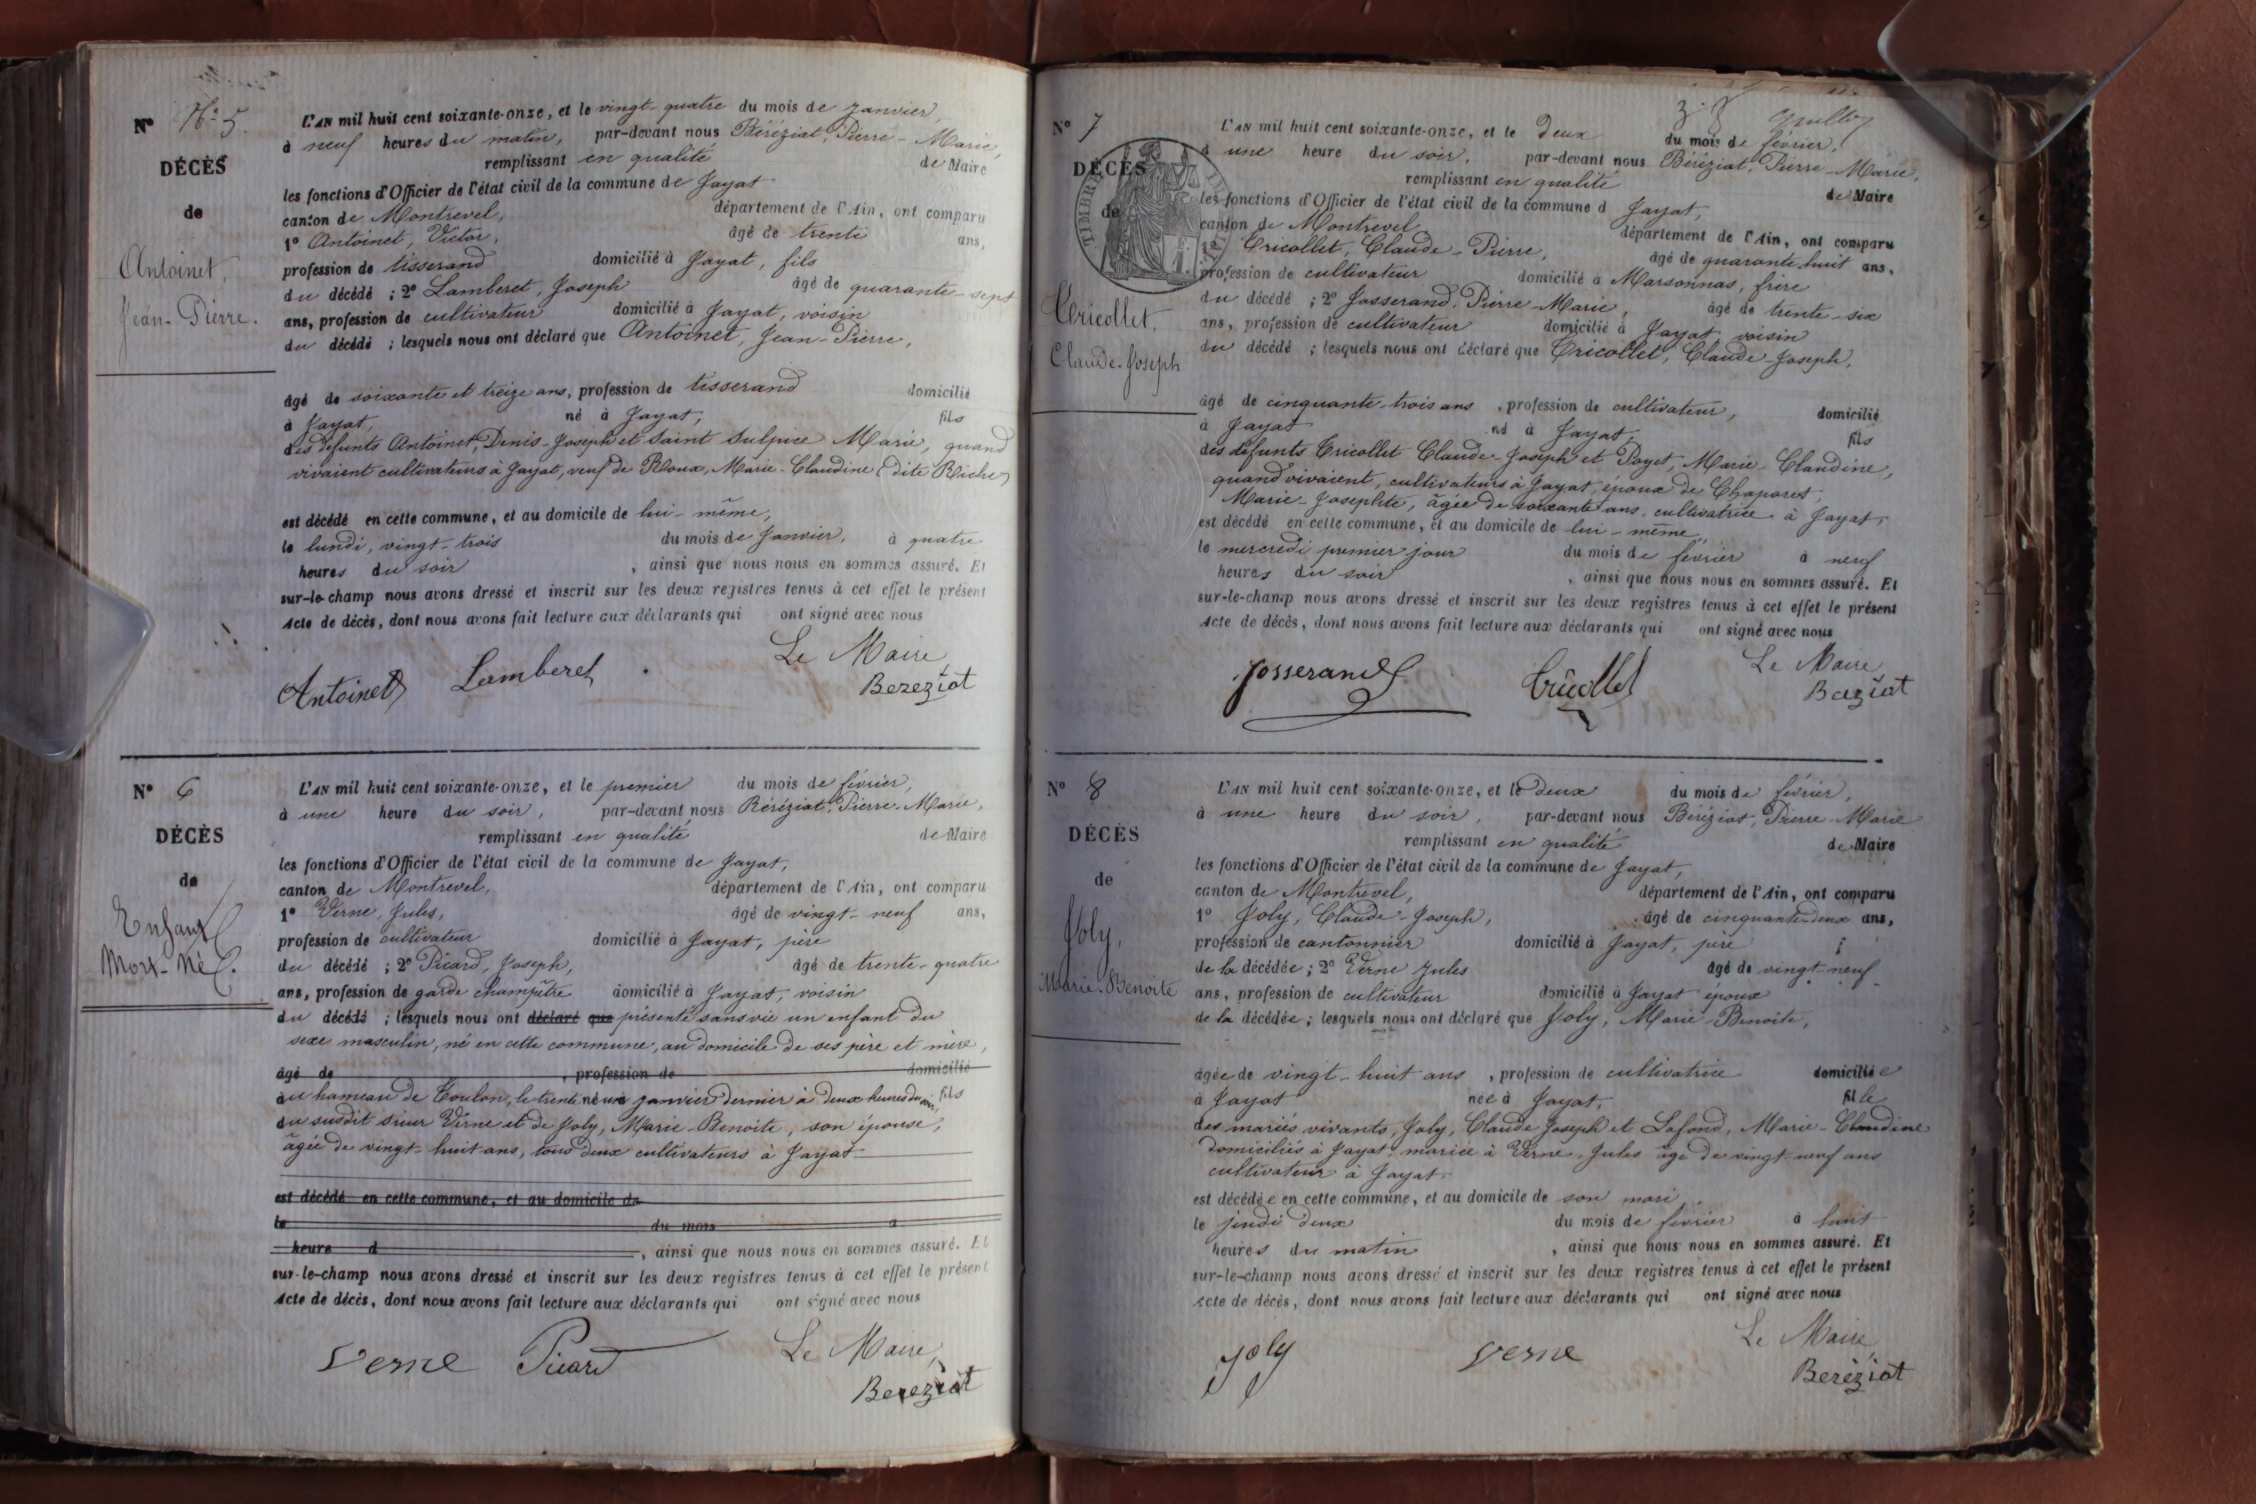 Nº Nº 5.
DÉCÈS
de
Antoinet,
Jean-Pierre.
L'AN mil huit cent soixante-onze, et le vingt-quatre du mois de Janvier,
à neuf heures du matin, par-devant nous Béréziat, Pierre-Marie,
remplissant en qualité de Maire
les fonctions d'Officier de l'état civil de la commune de Jayat
canton de Montrevel, département de l'Ain, ont comparu
1º Antoinet, Victor, âgé de trente ans,
profession de tisserand domicilié à Jayat, fils
du décédé ; 2º Lamberet, Joseph âgé de quarante-sept
ans, profession de cultivateur domicilié à Jayat, voisin
du décédé ; lesquels nous ont déclaré que Antoinet, Jean-Pierre,
âgé de soixante et treize ans, profession de tisserand domicilié
à Jayat, né à Jayat, fils
des défunts Antoinet, Denis-Joseph et Saint Sulpice Marie, quand
vivaient cultivateurs à Jayat, veuf de Roux, Marie-Claudine (dite Riche)
est décédé en cette commune, et au domicile de lui-même,
le lundi, vingt-trois du mois de Janvier, à quatre
heures du soir , ainsi que nous nous en sommes assuré. Et
sur-le-champ nous avons dressé et inscrit sur les deux registres tenus à cet effet le présent
Acte de décès, dont nous avons fait lecture aux déclarants qui ont signé avec nous
Le Maire
Antoinet Lamberet Bereziat
Nº 6
DÉCÈS
de
Enfant
Mort-Né.
L'AN mil huit cent soixante-onze, et le premier du mois de février,
à une heure du soir, par-devant nous Béréziat, Pierre-Marie,
remplissant en qualité de Maire
les fonctions d'Officier de l'état civil de la commune de Jayat,
canton de Montrevel, département de l'Ain, ont comparu
1º Verne, Jules, âgé de vingt-neuf ans,
profession de cultivateur domicilié à Jayat, père
du décédé ; 2º Picard, Joseph, âgé de trente-quatre
ans, profession de garde champêtre domicilié à Jayat, voisin
du décédé ; lesquels nous ont déclaré que présenté sans vie un enfant du
sexe masculin, né en cette commune, au domicile de ses père et mère,
âgé de , profession de domicilié
au hameau de Toulon, le trente né un janvier dernier à deux heures du soir, fils
du susdit sieur Verne et de Joly, Marie-Benoite, son épouse,
âgée de vingt-huit ans, tous deux cultivateurs à Jayat
est décédé en cette commune, et au domicile de
le du mois à
heure d , ainsi que nous nous en sommes assuré. Et
sur-le-champ nous avons dressé et inscrit sur les deux registres tenus à cet effet le présent
Acte de décès, dont nous avons fait lecture aux déclarants qui ont signé avec nous
Verne Picard Le Maire,
Bereziat
Nº 7
DÉCÈS
de
TIMBRE
Cricollet,
Claude-Joseph
L'AN mil huit cent soixante-onze, et le Deux du mois de février,
à une heure du soir, par-devant nous Béréziat, Pierre-Marie,
remplissant en qualité de Maire
les fonctions d'Officier de l'état civil de la commune d Jayat,
canton de Montrevel département de l'Ain, ont comparu
1º Cricollet, Claude-Pierre, âgé de quarante-huit ans,
profession de cultivateur domicilié à Marsonnas, frère
du décédé ; 2º Josserand, Pierre-Marie, âgé de trente-six
ans, profession de cultivateur domicilié à Jayat voisin
du décédé ; lesquels nous ont déclaré que Cricollet, Claude-Joseph,
âgé de cinquante-trois ans , profession de cultivateur, domicilié
à Jayat né à Jayat, fils
des défunts Cricollet Claude-Joseph et Poyet, Marie-Claudine,
quand vivaient, cultivateurs à Jayat, époux de Chaparet,
Marie-Josephte, âgée de soixante ans, cultivatrice à Jayat,
est décédé en cette commune, et au domicile de lui-même,
le mercredi premier jour du mois de février à neuf
heures du soir , ainsi que nous nous en sommes assuré. Et
sur-le-champ nous avons dressé et inscrit sur les deux registres tenus à cet effet le présent
Acte de décès, dont nous avons fait lecture aux déclarants qui ont signé avec nous
Le Maire
Josserand Cricollet Bereziat
Nº 8
DÉCÈS
de
Joly,
Marie-Benoite
L'AN mil huit cent soixante-onze, et le deux du mois de février,
à une heure du soir, par-devant nous Béréziat, Pierre-Marie
remplissant en qualité de Maire
les fonctions d'Officier de l'état civil de la commune de Jayat,
canton de Montrevel, département de l'Ain, ont comparu
1º Joly, Claude-Joseph, âgé de cinquante-deux ans,
profession de cantonnier domicilié à Jayat, père
de la décédée ; 2º Verne Jules âgé de vingt-neuf
ans, profession de cultivateur domicilié à Jayat époux
de la décédée ; lesquels nous ont déclaré que Joly, Marie-Benoite,
âgée de vingt-huit ans , profession de cultivatrice domiciliée
à Jayat née à Jayat, fille
des mariés vivants, Joly, Claude Joseph et Lafond, Marie-Claudine
domiciliés à Jayat, mariée à Verne, Jules âgé de vingt-neuf ans
cultivateur à Jayat.
est décédée en cette commune, et au domicile de son mari,
le jeudi deux du mois de février à huit
heures du matin , ainsi que nous nous en sommes assuré. Et
sur-le-champ nous avons dressé et inscrit sur les deux registres tenus à cet effet le présent
Acte de décès, dont nous avons fait lecture aux déclarants qui ont signé avec nous
Le Maire,
Joly Verne Béréziat